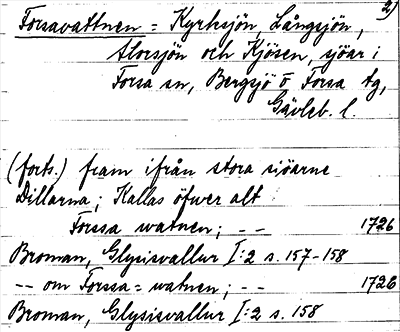 2)
Forsavattnen = Kyrksjön, Långsjön,
Storsjön och Kjösen, sjöar i
Forsa sn, Bergsjö o Forsa tg,
Gävleb. l.
(forts.) fram ifrån stora siöarne
Dillarna; Kallas öfwer alt
Forssa watnen; -- 1726
Broman, Glysisvallur I:2 s. 157-158
-- om Forssa=watnen; -- 1726
Broman, Glysisvallur I:2 s. 158